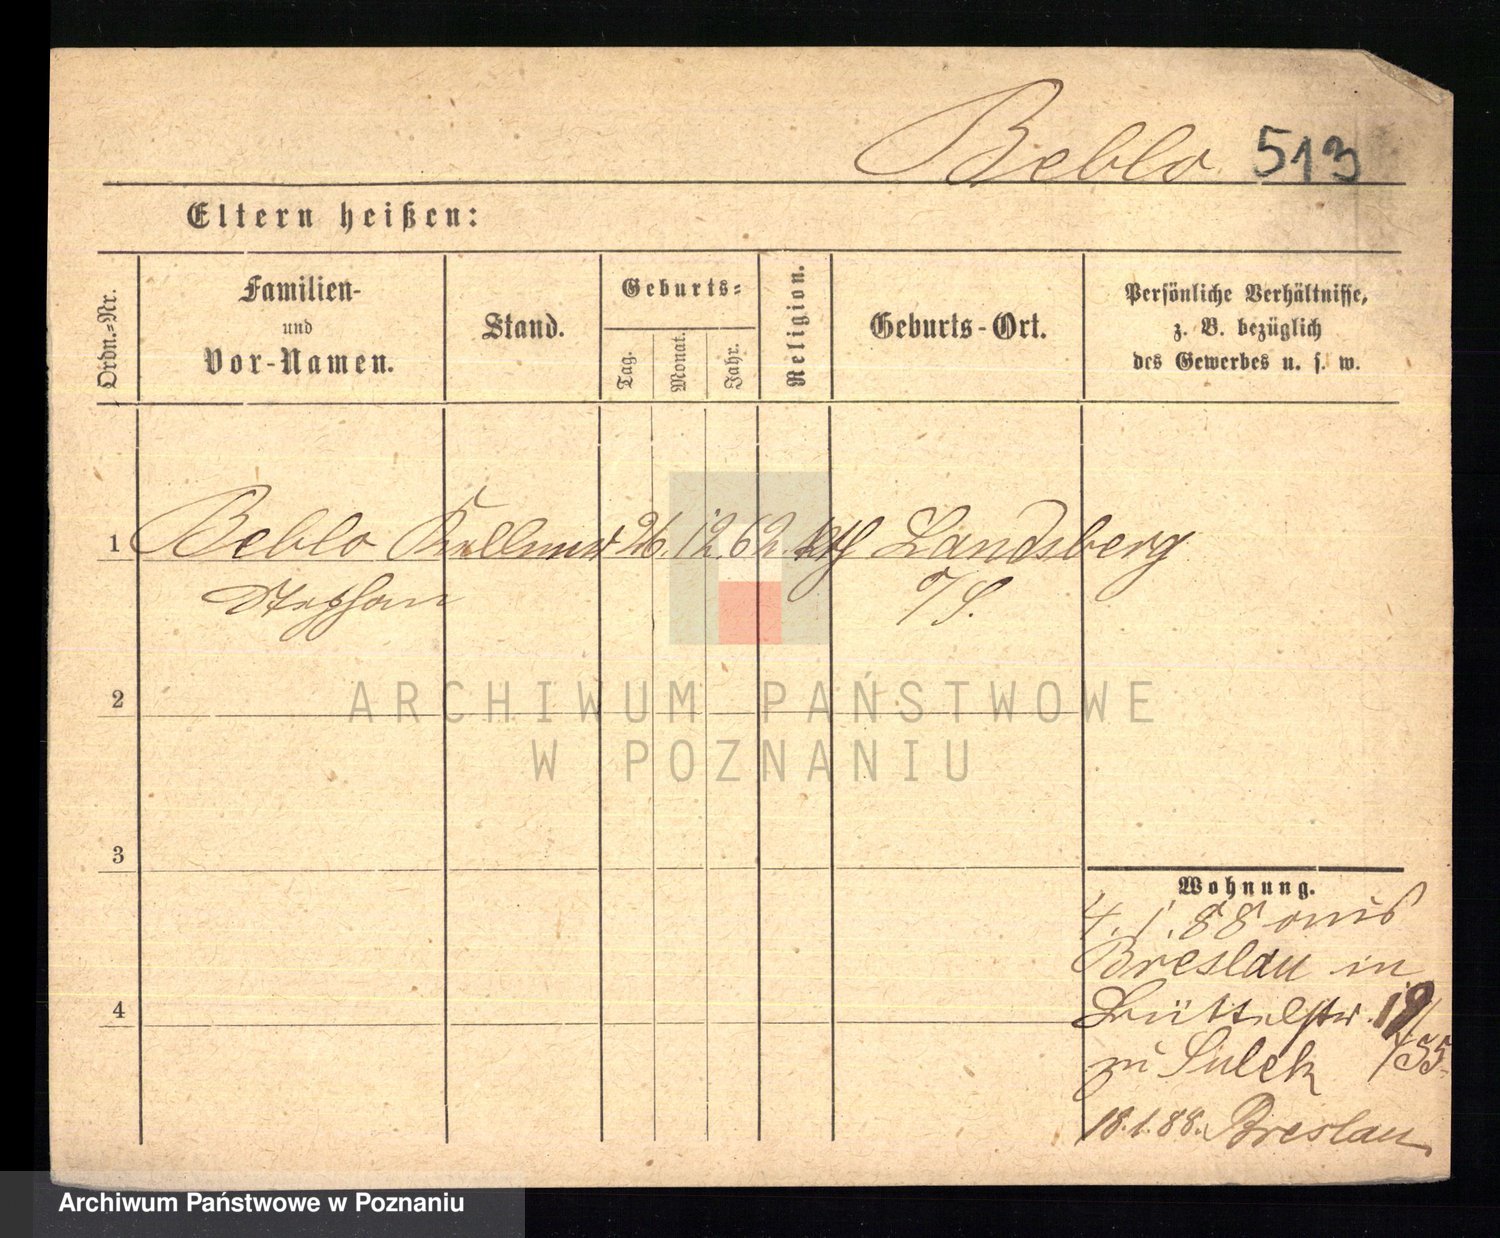 Beblo 513
Eltern heißen:
Ordn.-Nr.
Familien-
und
Vor-Namen.
Stand.
Geburts-
Tag.
Monat.
Jahr.
Religion.
Geburts-Ort.
Persönliche Verhältnisse,
z. B. bezüglich
des Gewerbes u. s. w.
1 Beblo Kellner 26. 12. 62. kth Landsberg
Stephan O/S.
2
ARCHIWUM PAŃSTWOWE
W POZNANIU
3
Wohnung.
4. 1. 88 aus
Breslau in
4
19/
zu Sulek
18.1.88. Breslau
Archiwum Państwowe w Poznaniu